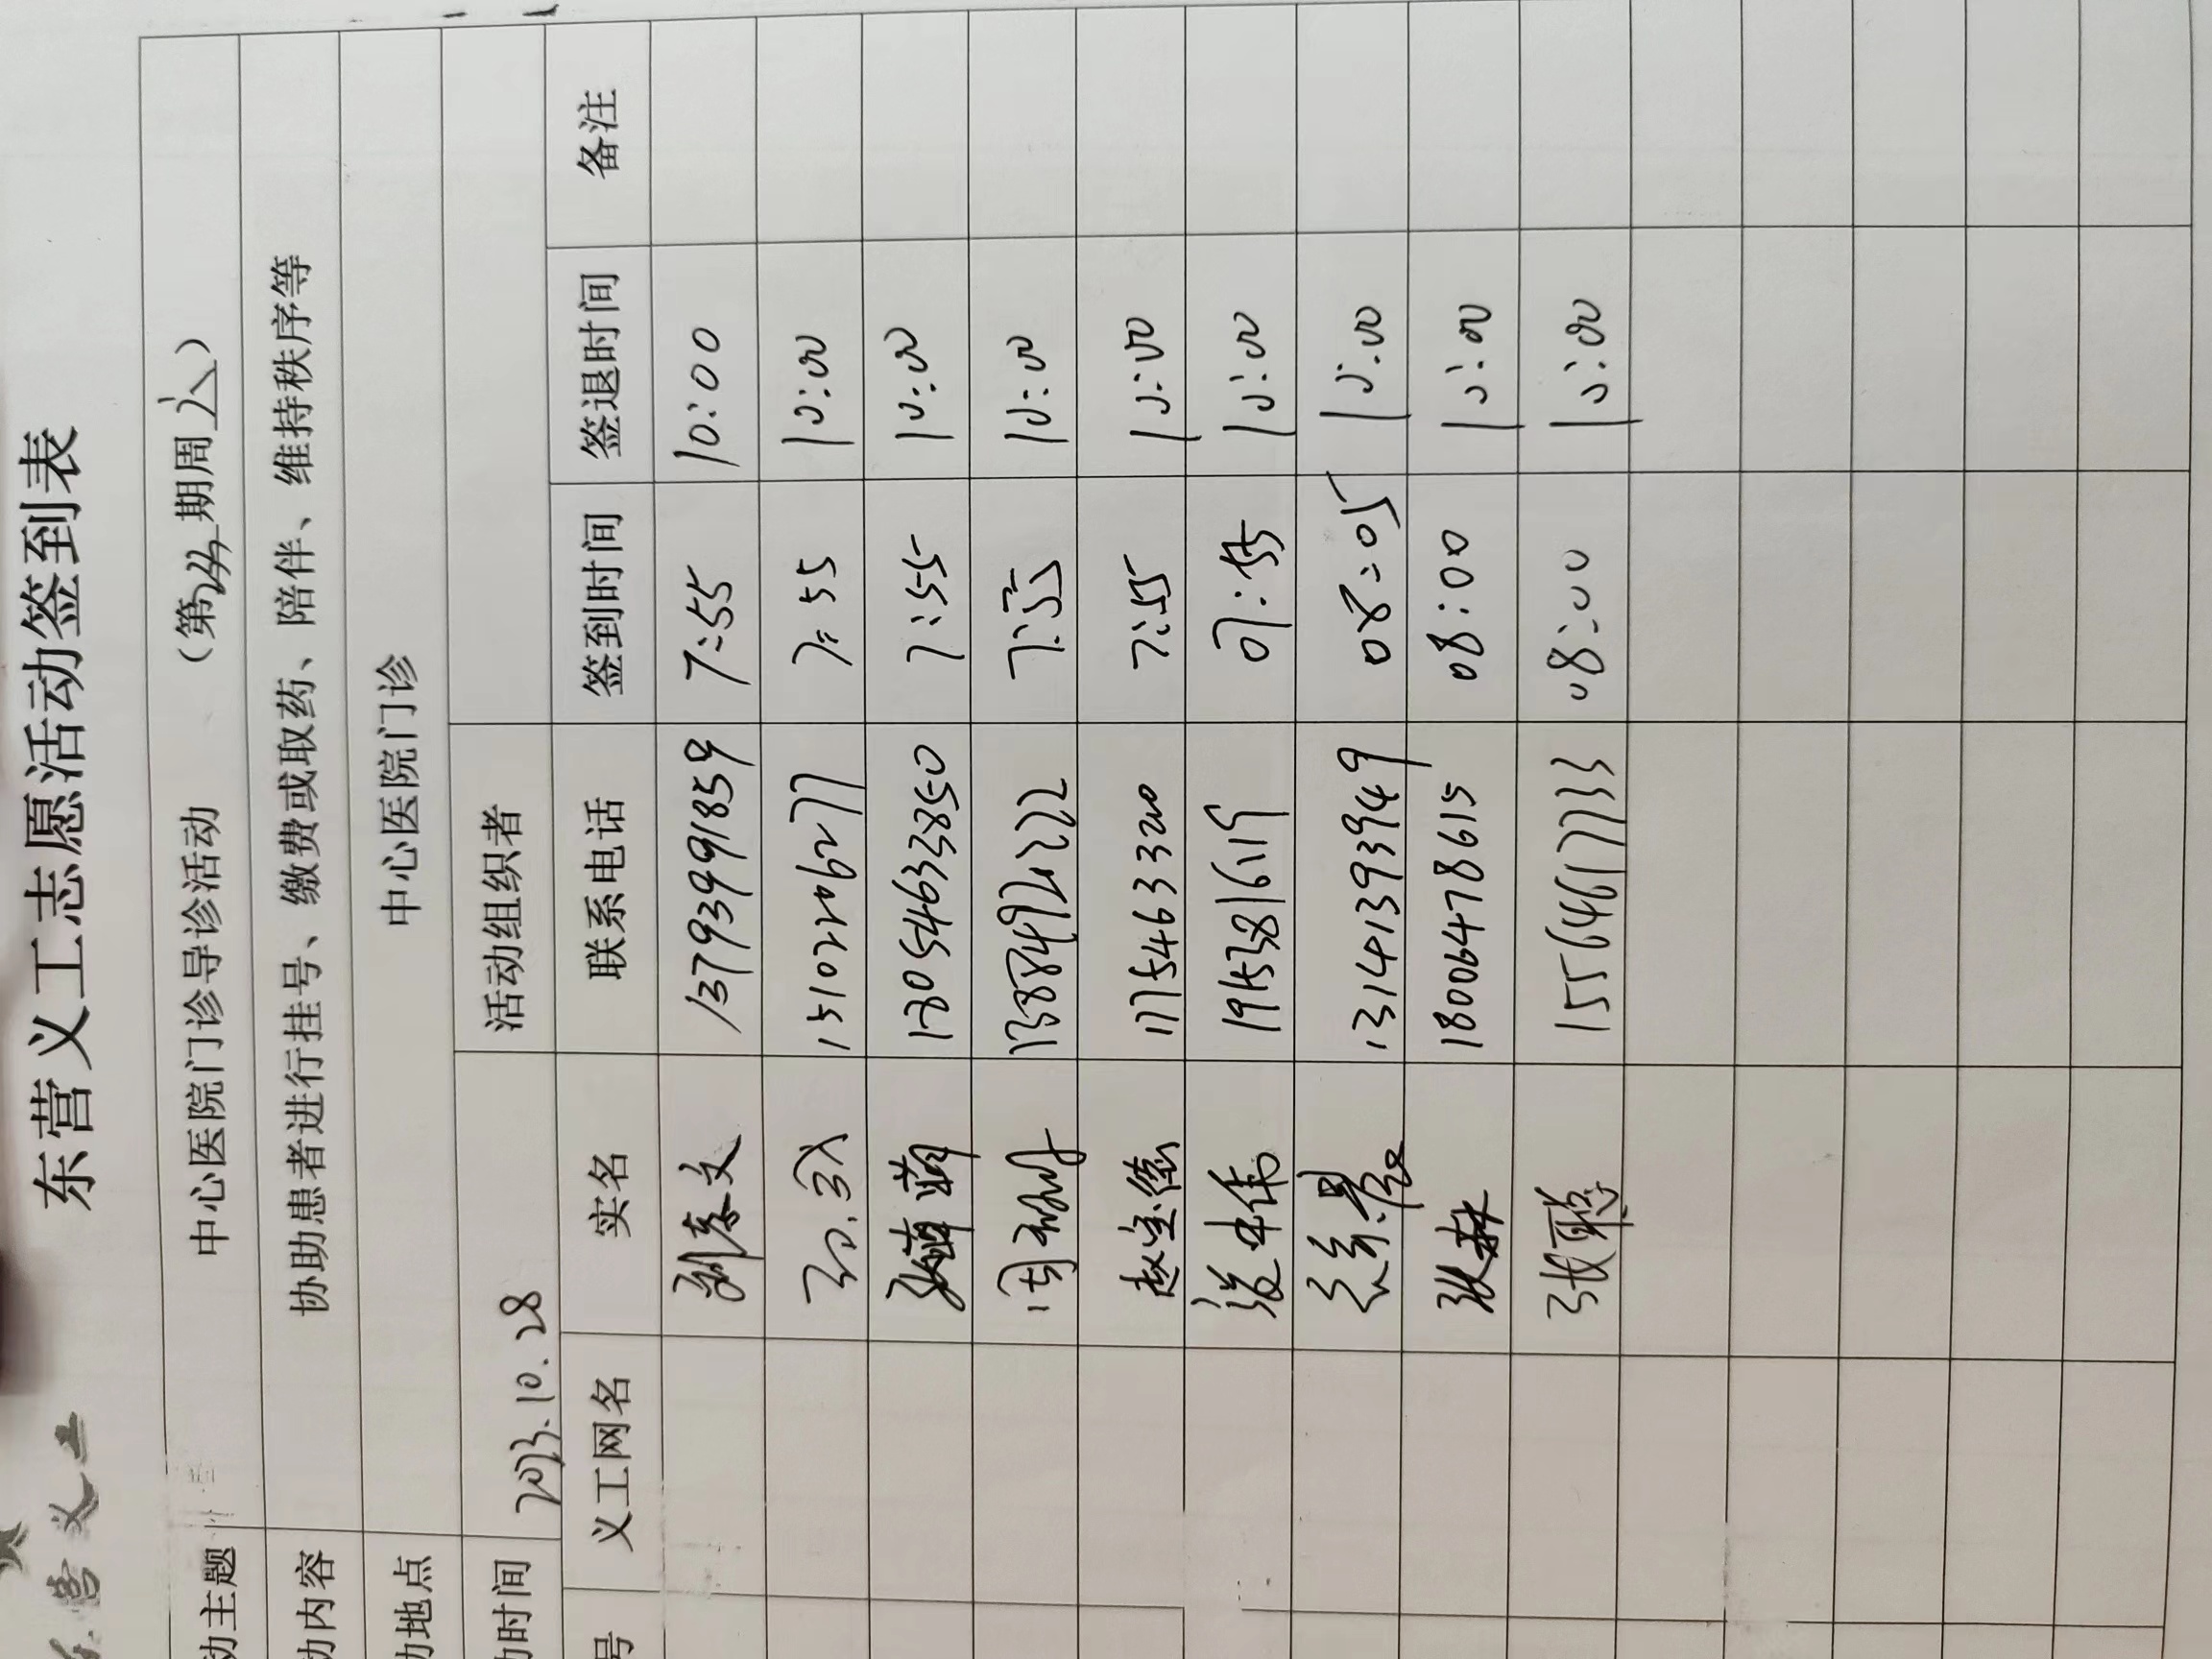 东营义工
东营义工志愿活动签到表
动主题 中心医院门诊导诊活动 （第 期周六）
动内容 协助患者进行挂号、缴费或取药、陪伴、维持秩序等
动地点 中心医院门诊
动时间 2023.10.28 活动组织者
号 义工网名 实名 联系电话 签到时间 签退时间 备注
文 13793991859 7:55 10:00
15102206277 7:55 10:00
18054633850 7:55 10:00
周 7:55 10:00
赵宝德 17754633200 7:55 10:00
伟 07:55 10:00
张景 13141393949 08:05 10:00
张 18006478615 08:00 10:00
张聪 15564617733 08:00 10:00